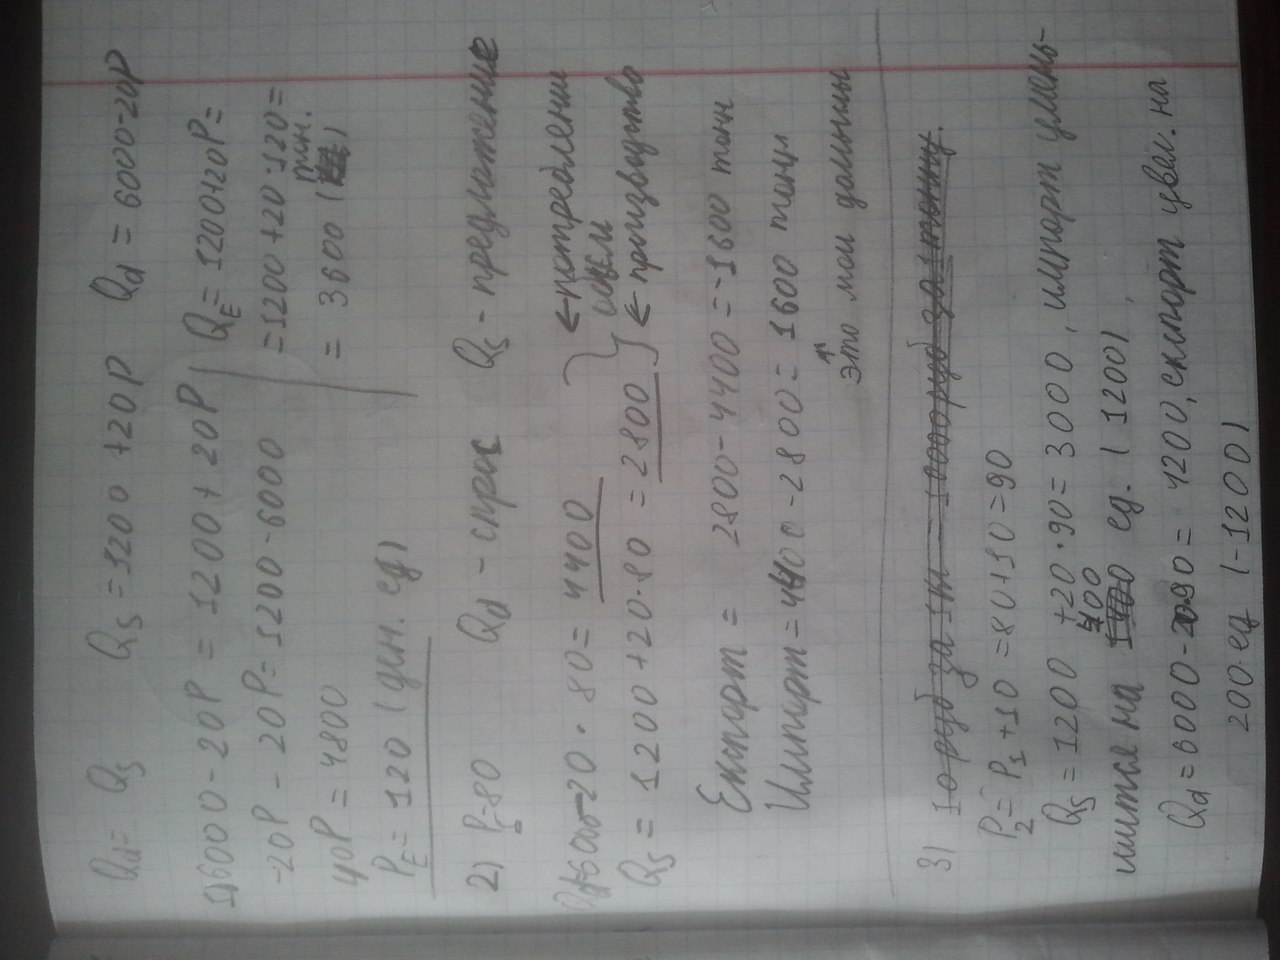 Qd = Qs Qs = 1200 + 20P Qd = 6000-20P
1) 6000 - 20P = 1200 + 20P
-20P - 20P = 1200 - 6000
40P = 4800
PE = 120 (ден. ед)
QE = 1200+20P =
= 1200 + 20 · 120 =
= 3600 (
2) P=80 Qd - спрос Qs - предложение
Qd=6000-20 · 80 = 4400 ← потребление
Qs = 1200 + 20 · 80 = 2800 ← производство
Експорт = 2800 - 4400 = -1600 тонн
Импорт = 4400 - 2800 = 1600 тонн
это мои
3) 10 руб за 1 кг = 10000 руб за 1 тонну.
P2 = P1 + 10 = 80 + 10 = 90
Qs = 1200 + 20 · 90 = 3000, импорт умень-
шится на 400 ед. (1200)
Qd = 6000 - 20 90 = 4200, експорт увел. на
200 ед (-1200)